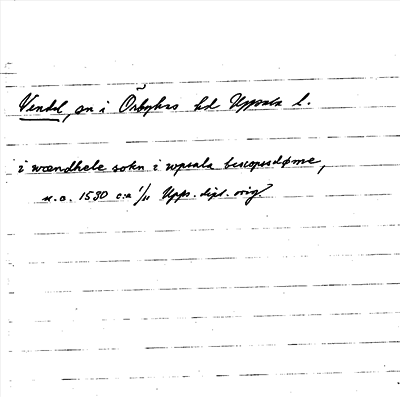 Vendel, sn i Örbyhus hd Uppsala l.
i wændhele sokn i wpsala biscopsdøme,
u.a. 1530 c:a 1/11 Upps. dipl. orig.